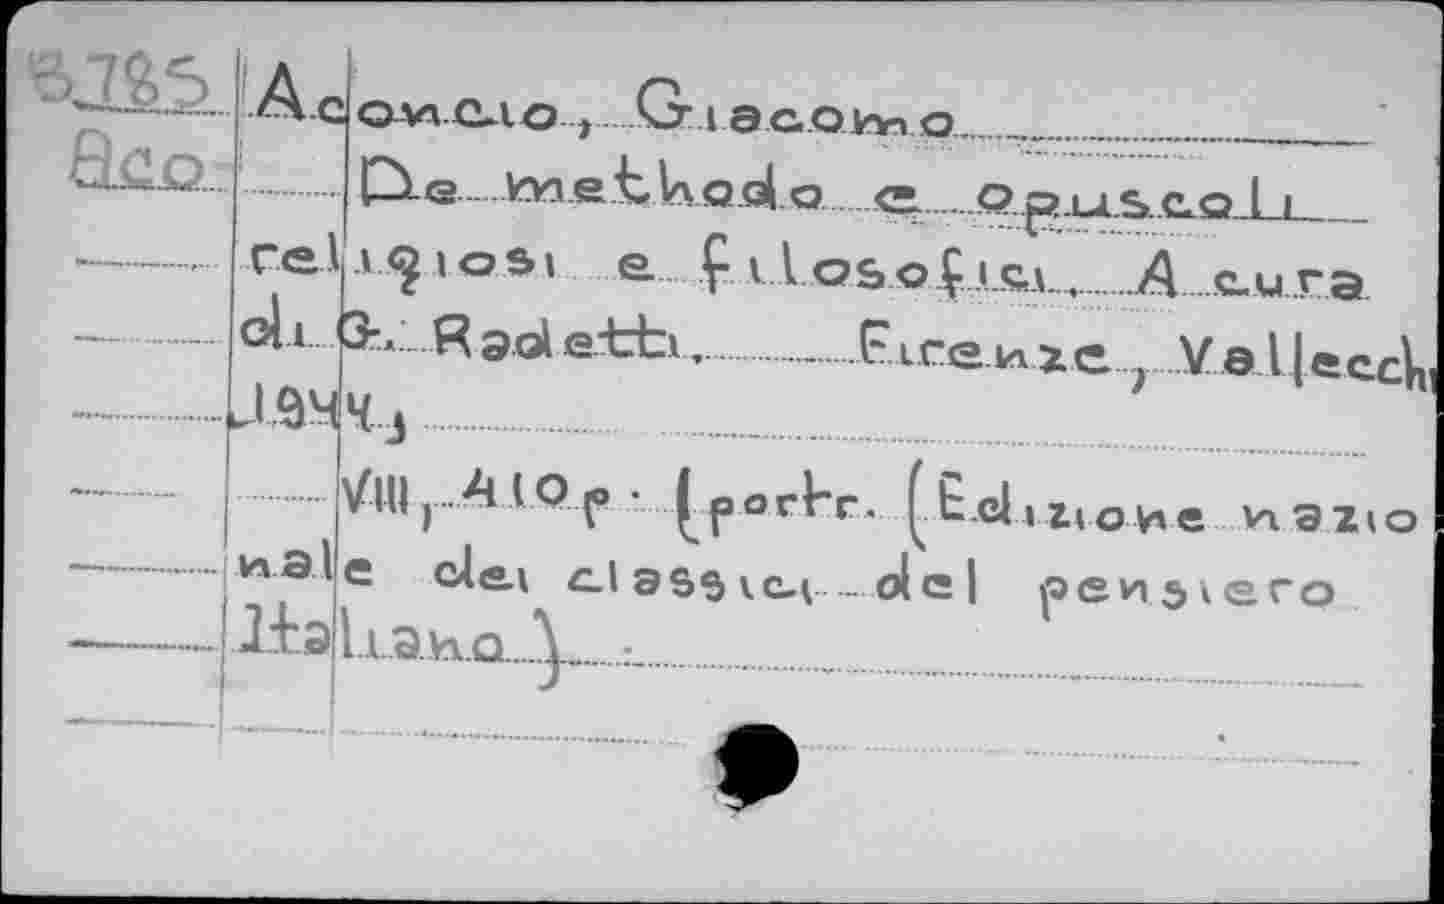 B785 Aconcio, Giacomo
Aco De methodo e opuscoli
religiosi e filosofici. A cura
di G. Radetti. Firenze, Vallecchi
1944;
VIII, 410p. (portr. (Edizione nazio
nale dei classici del pensiero
Italiano)